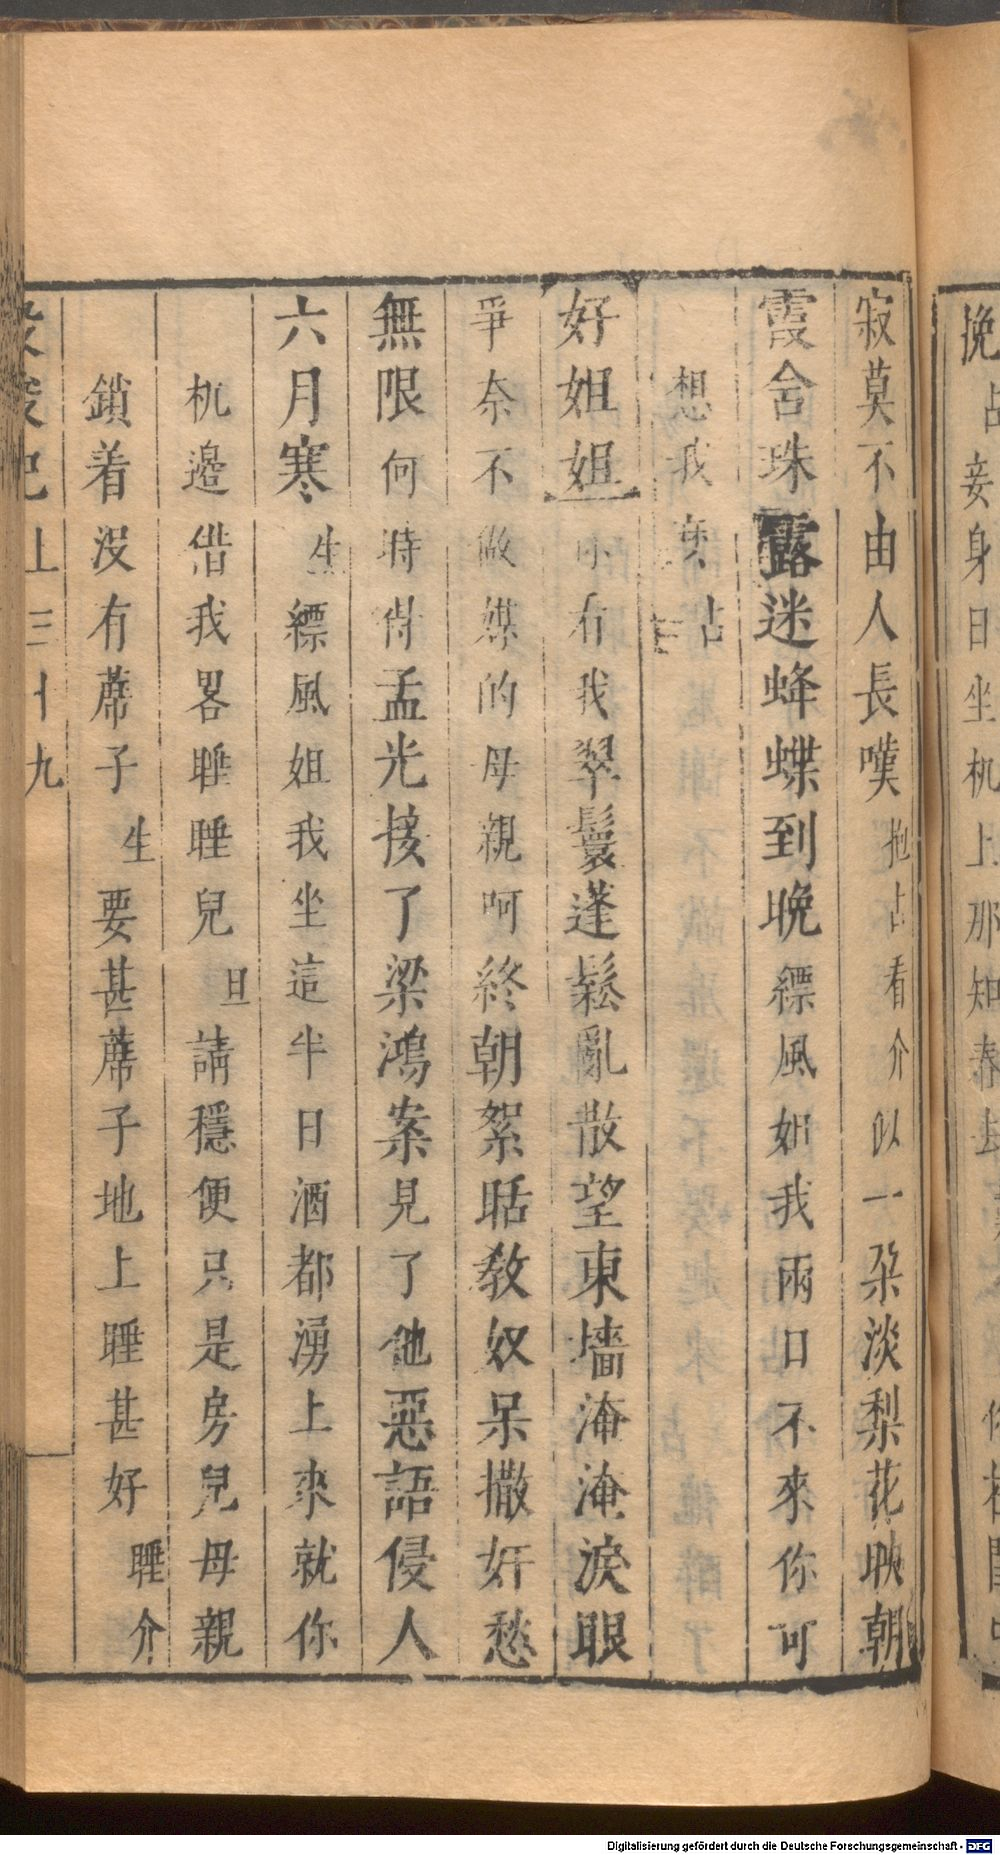 挽占妾身日坐机上那知春
寂莫不由人長嘆抱占看介以一朶淡梨花映朝
霞含珠露迷蜂蝶到晚縹風姐我兩日不來你可
想我麽占
好姐姐小右我翠鬟蓬鬆亂散望東墻淹淹淚眼
爭奈不做媒的母親呵終朝絮聒教奴呆撒奸愁
無限何時得孟光接了梁鴻案見了他惡語侵人
六月寒生縹風姐我坐這半日酒都湧上來就你
机邊借我畧睡睡兒旦請穩便只是房兒母親
鎖着没有蓆子生要甚蓆子地上睡甚好睡介
投梭記上三十九
Digitalisierung gefördert durch die Deutsche Forschungsgemeinschaft - DFG